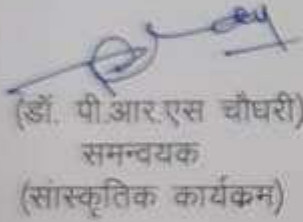 (डॉ. पी.आर.एस चौधरी)
समन्वयक
(सांस्कृतिक कार्यकम)